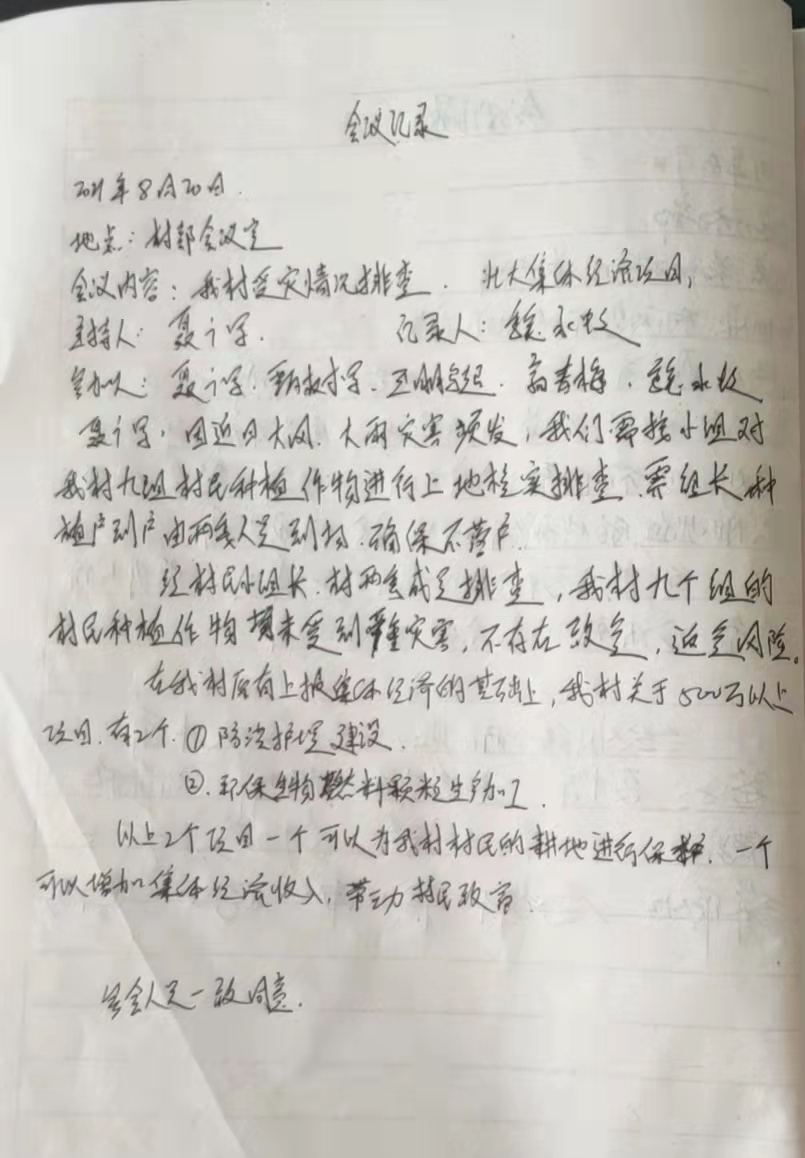 会议记录
2021年8月20日.
地点：村部会议室
会议内容：我村受灾情况排查. 壮大集体经济项目,
主持人：聂 记录人：魏永
参加人：聂
因近日大风.大雨灾害频发，我们需按小组对
我村九组村民种植作物进行上地核实排查.需组长.种
植户到户由两委人员到场.确保不落户.
经村民小组长.村两委成员排查，我村九个组的
村民种植作物 未受到严重灾害，不存在致贫，返贫风险。
在我村原有上报集体经济的基础上,我村关于500万以上
项目.有2个.①防洪护堤建设.
②.环保生物燃料颗粒生产加工.
以上2个项目一个可以为我村村民的耕地进行保护.一个
可以增加集体经济收入,带动村民致富.
参会人员一致同意.